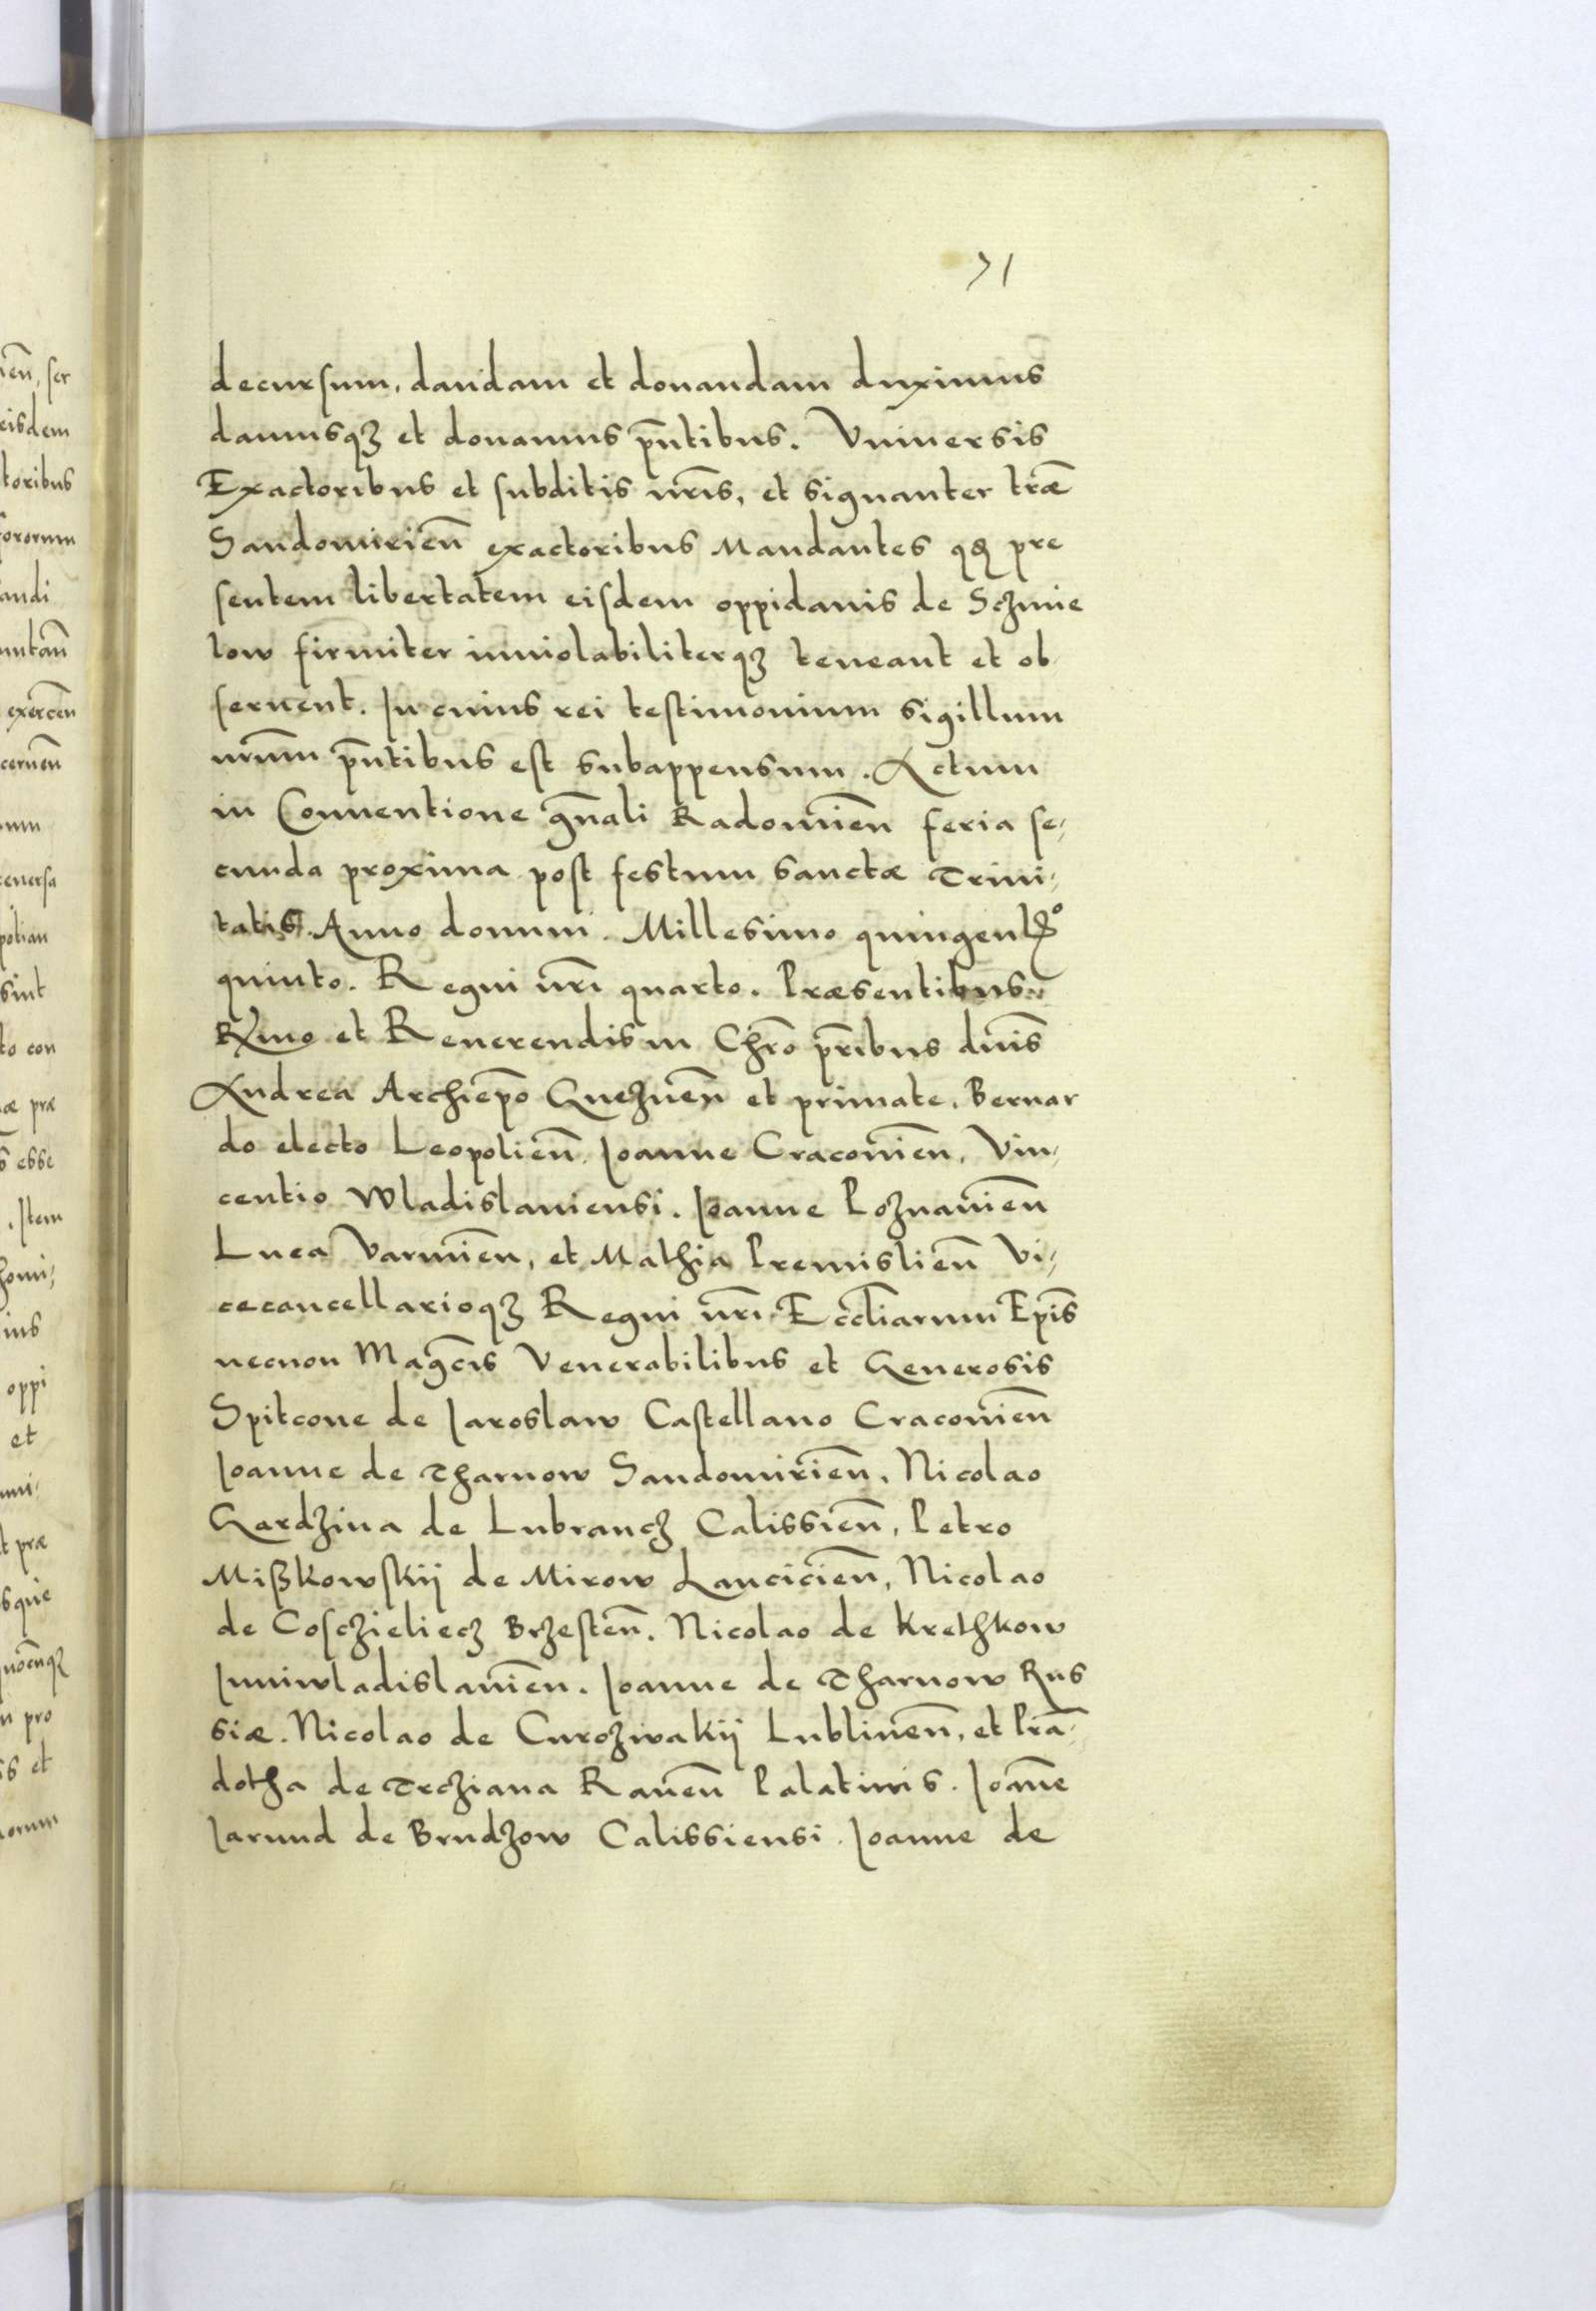 71
decursum, dandam et donandam duximus
damusqȝ et donamus p̄ntibus. Vniuersis
Exactoribus et subditis nr̄is, et signanter tr̄æ
Sandomirien̄ exactoribus Mandantes qȝ pre
sentem libertatem eisdem oppidanis de Sczmie
low firmiter inuiolabiliterqȝ teneant et ob
seruent. In cuius rei testimonium sigillum
nr̄um p̄ntibus est subappensum. Actum
in Conuentione gn̄ali Radomien̄ feria se,
cunda proxima post festum sanctæ Trini,
tatis. Anno domini. Millesimo quingente͞o
quinto. Regni nr̄i quarto. Præsentibus
Rx̄mo et Reuerendis in Chr̄o pr̄ibus dn̄is
Andrea Archiepō Gneznen̄ et primate. Bernar
do electo Leopolien̄. Ioanne Cracouien̄, Vin,
centio Wladislauiensi. Ioanne Poznanien̄
Luca Varmien̄, et Mathia Premislien̄ Vi,
cecancellarioqȝ Regni nr̄i Eccl̄iarum Ep̄is
necnon Magc̄is Venerabilibus et Generosis
Spitcone de Iaroslaw Castellano Cracouien̄
Ioanne de Tharnow Sandomirien̄, Nicolao
Gardzina de Lubrancz Calissien̄, Petro
Mißkowskij de Mirow Lancicien̄, Nicolao
de Cosczieliecz Brzesten̄. Nicolao de Krethkow
Iuniwladislauien̄. Ioanne de Tharnow Rus
siæ. Nicolao de Curozwakij Lublinen̄, et Prā
dotha de Trcziana Rauen̄ Palatinis. Ioan̄e
Iarund de Brudzow Calissiensi. Ioanne de